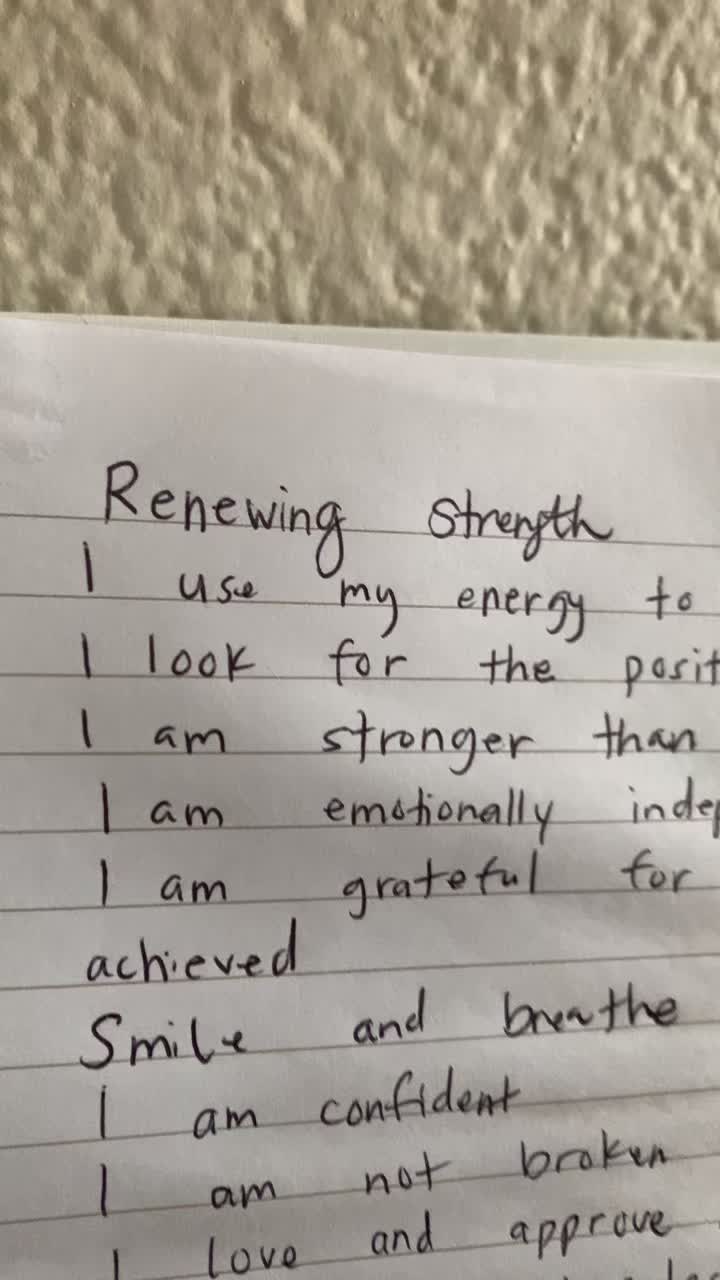 Renewing strength
I use my energy to
I look for the posit
I am stronger than
I am emotionally indep
I am grateful for
achieved
Smile and breathe
I am confident
I am not broken
I love and approve